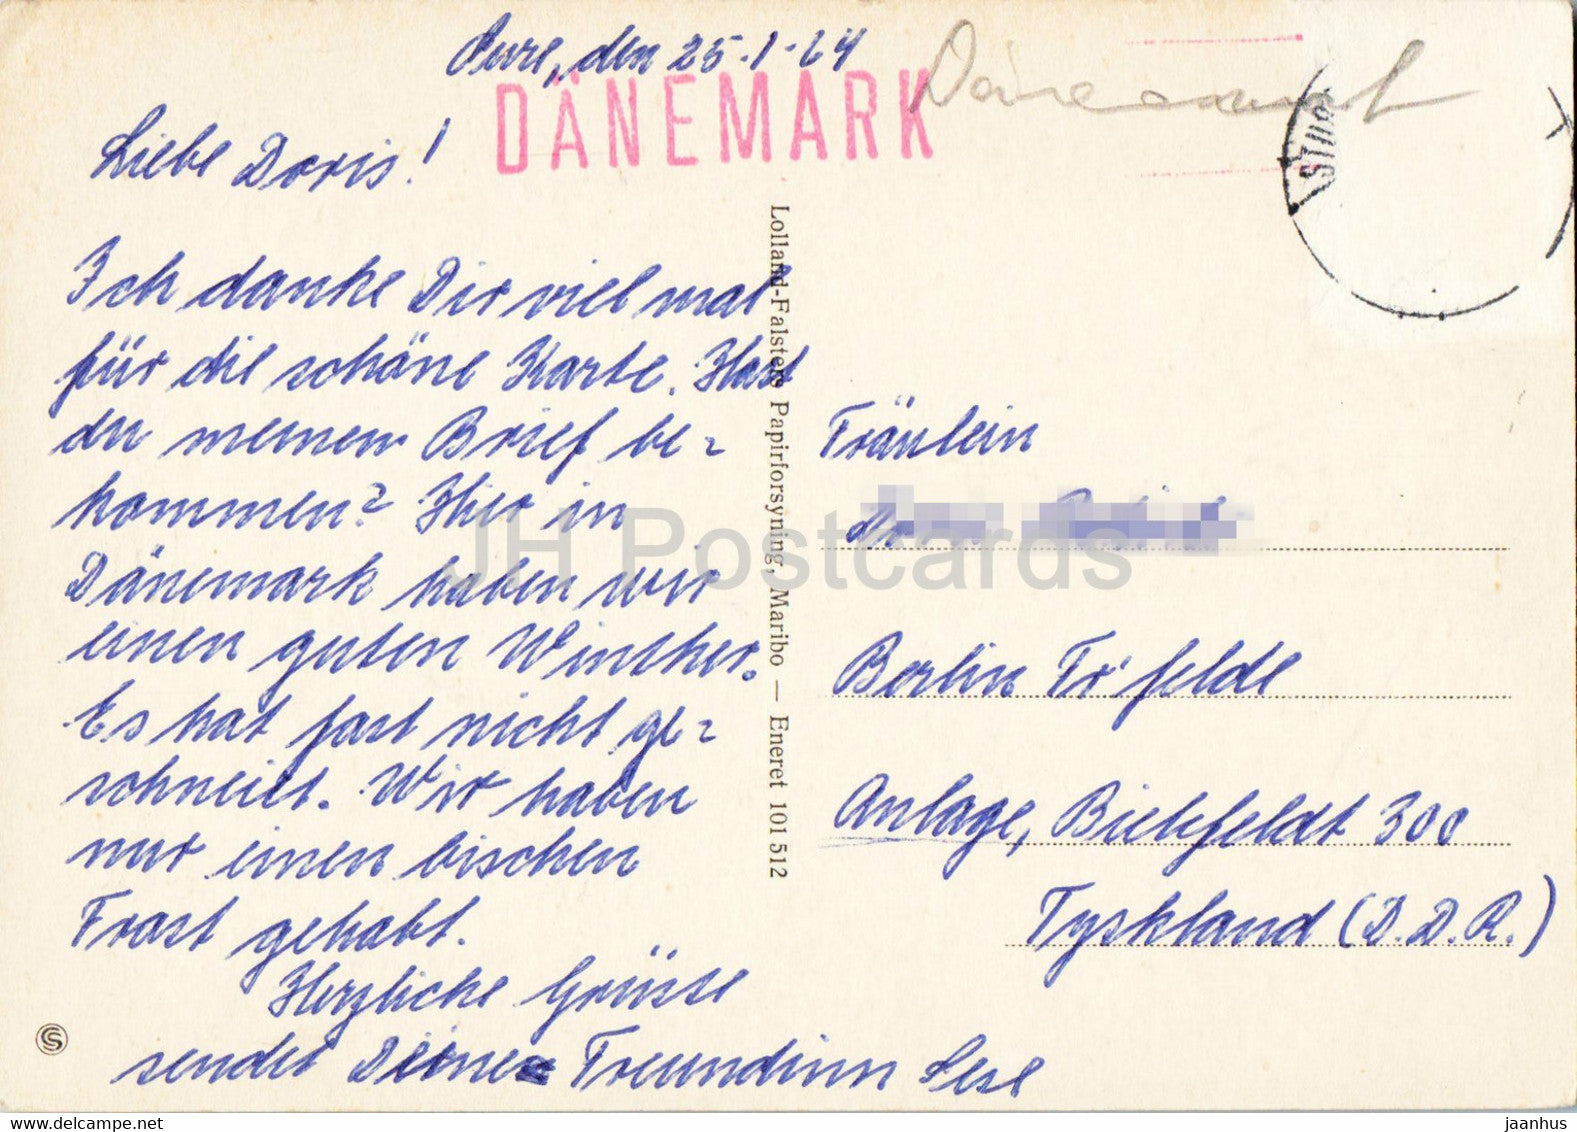 Oure, den 25.1.64
DÄNEMARK
Dänemark
Liebe Doris!
Ich danke Dir viel mal
für die schöne Karte. Hast
du meinen Brief be-
kommen? Hier in
Dänemark haben wir
einen guten Winther.
Es hat fast nicht ge-
schneit. Wir haben
nur einen bischen
Frost gehabt.
Herzliche Grüsse
sendet Deine Freundinn Lese
Lolland-Falsters Papirforsyning, Maribo — Eneret 101 512
Fräulein
Berlin Fr'felde
Anlage, Bielefeldt 300
Tyskland (D.D.R.)
JH Postcards
www.delcampe.net
jaanhus